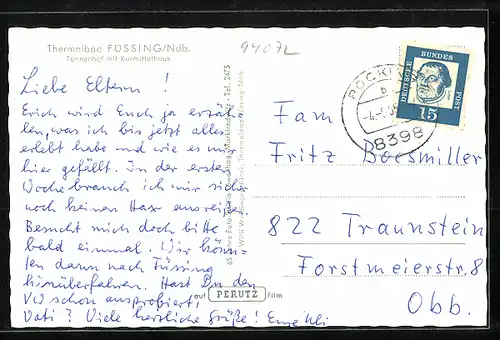 Thermalbad FÜSSING/Ndb.
Tannenhof mit Kurmittelhaus
94072
Liebe Eltern!
Erich wird Euch ja erzäh-
len, was ich bis jetzt alles
erlebt habe und wie es mir
hier gefällt. In der ersten
Woche brauch ich mir sicher
noch keinen Haxn ausreißen.
Besucht mich doch bitte
bald einmal. Wir könn-
ten dann nach Füssing
hinüberfahren. Hast Du den
VW schon ausprobiert,
Vati? Viele herzliche Grüße!
auf PERUTZ Film
DEUTSCHE BUNDESPOST
15
POCKING
b
8398
Fam
Fritz Boesmiller
822 Traunstein
Forstmeierstr. 8
Obb.